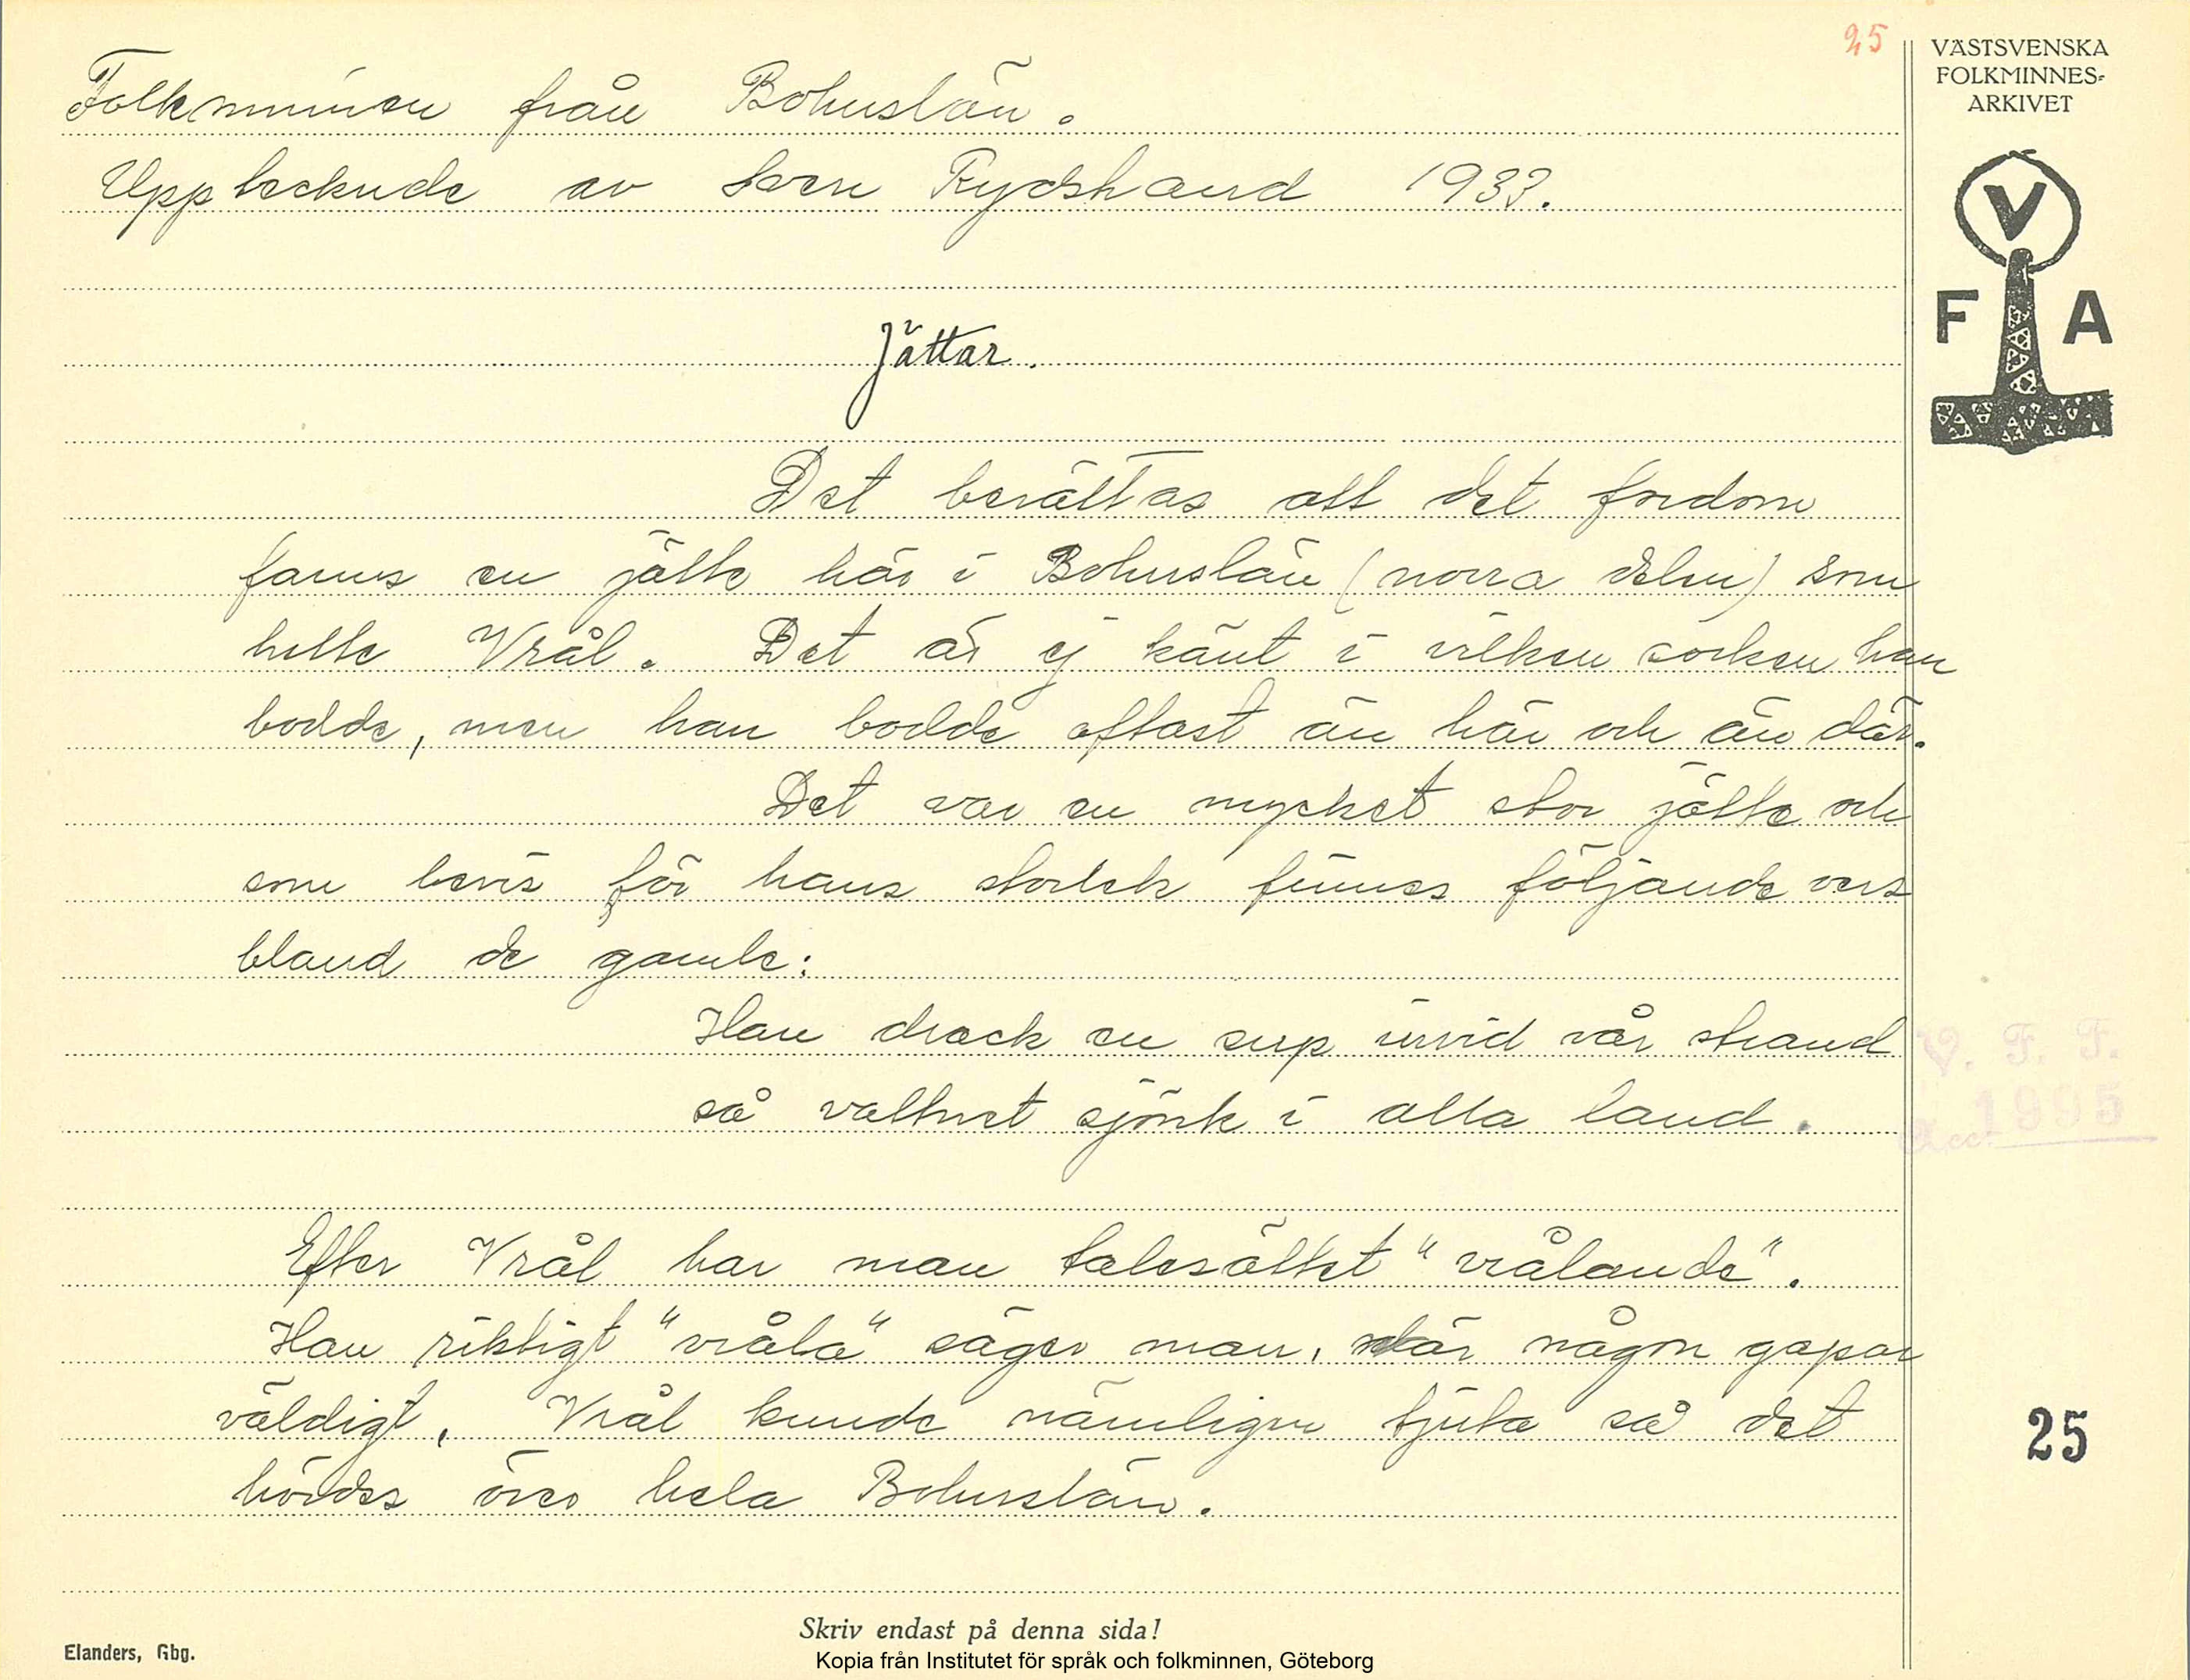 25
VÄSTSVENSKA
FOLKMINNES-
ARKIVET
V
F A
Folkminnen från Bohuslän.
Upptecknade av Sven Rydstrand 1933.
Jättar.
Det berättas att det fordom
fanns en jätte här i Bohuslän (norra delen) som
hette Vrål. Det är ej känt i vilken socken han
bodde, men han bodde oftast än här och än där.
Det var en mycket stor jätte och
som bevis för hans storlek finnes följande vers
bland de gamle:
Han drack en sup invid vår strand
så vattnet sjönk i alla land.
V. F. F.
Acc. 1995
Efter Vrål har man talesättet "vrålande".
Han riktigt "vråla" säger man, när någon gapar
väldigt. Vrål kunde nämligen tjuta så det
hördes över hela Bohuslän.
25
Skriv endast på denna sida!
Elanders, Gbg.
Kopia från Institutet för språk och folkminnen, Göteborg